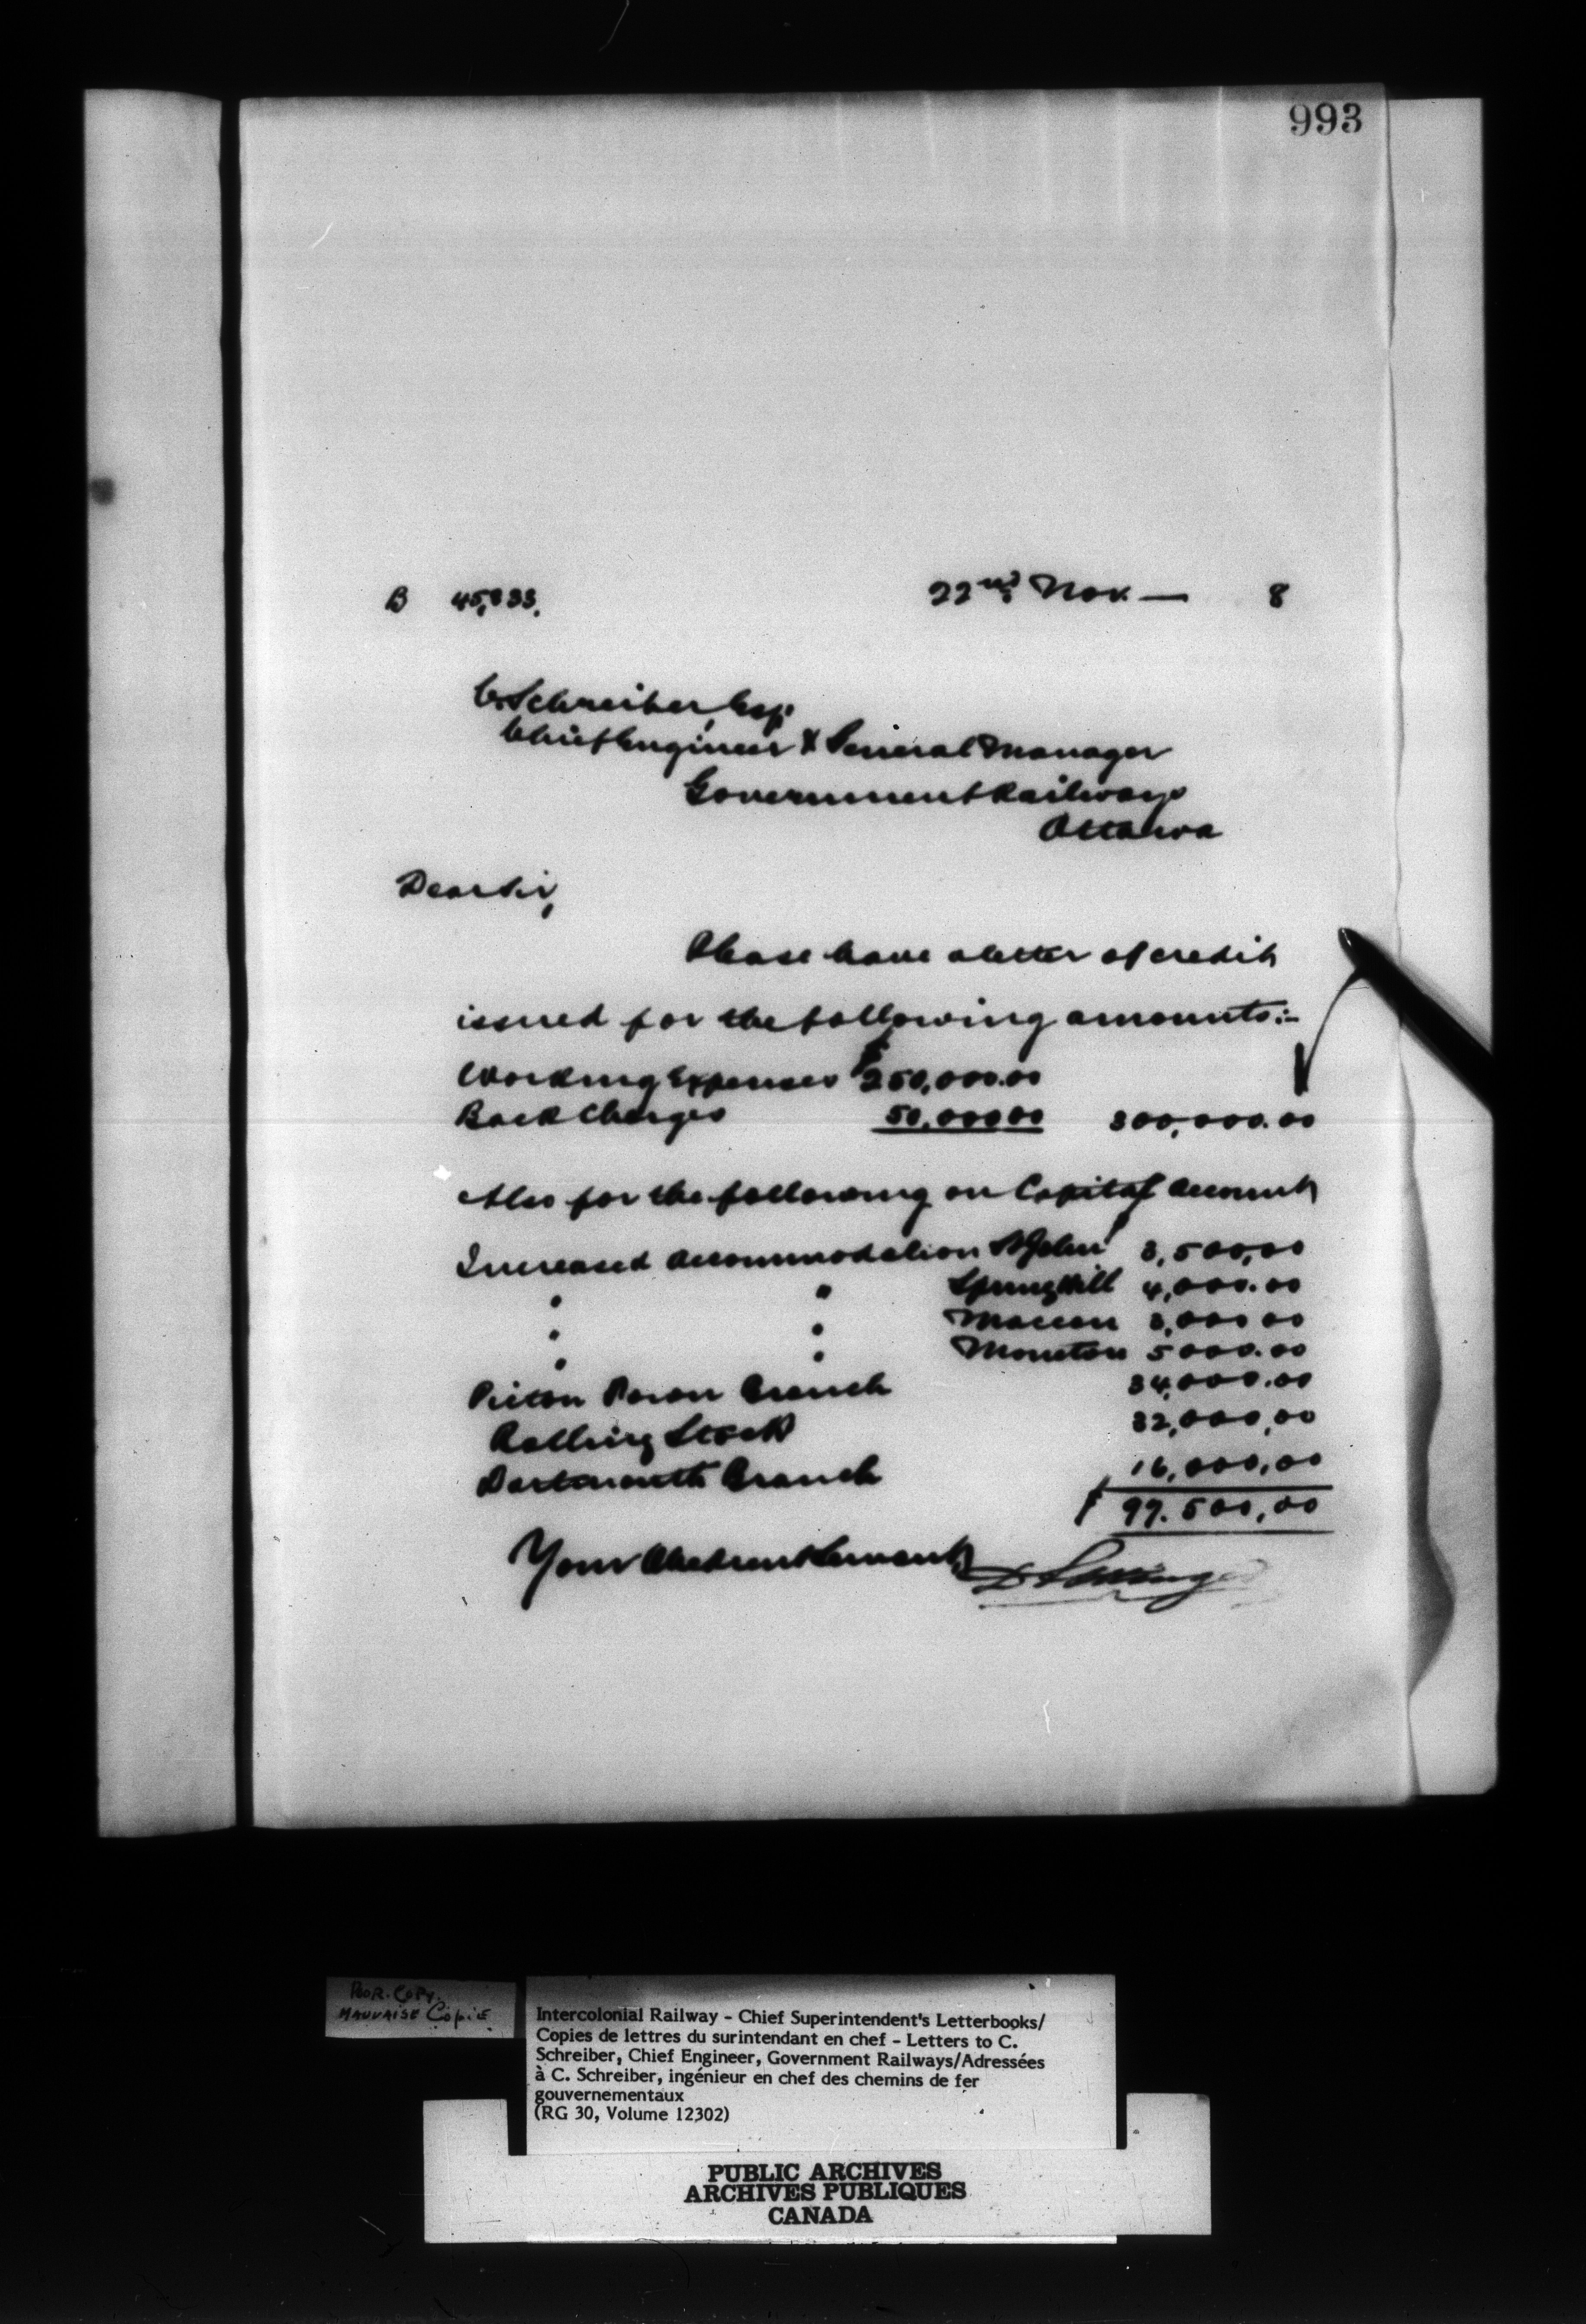 993
B 45,833.
22nd Nov. — 8
C. Schreiber, Esq.
Chief Engineer & General Manager
Government Railways
Ottawa
Dear Sir,
Please have a letter of credit
issued for the following amounts:-
Working Expenses $250,000.00
Back Charges 50,000 00 300,000.00
Also for the following on Capital Account
Increased Accommodation St John 3,500,00
" " Spring Hill 4,000.00
" " Maccan 3,000 00
" " Moncton 5000.00
Pictou Town Branch 34,000.00
Rolling Stock 32,000,00
Dartmouth Branch 16,000,00
$ 97.500,00
Your Obedient Servant
D Pottinger
POOR. COPY.
MAUVAISE COPIE
Intercolonial Railway - Chief Superintendent's Letterbooks/
Copies de lettres du surintendant en chef - Letters to C.
Schreiber, Chief Engineer, Government Railways/Adressées
à C. Schreiber, ingénieur en chef des chemins de fer
gouvernementaux
(RG 30, Volume 12302)
PUBLIC ARCHIVES
ARCHIVES PUBLIQUES
CANADA